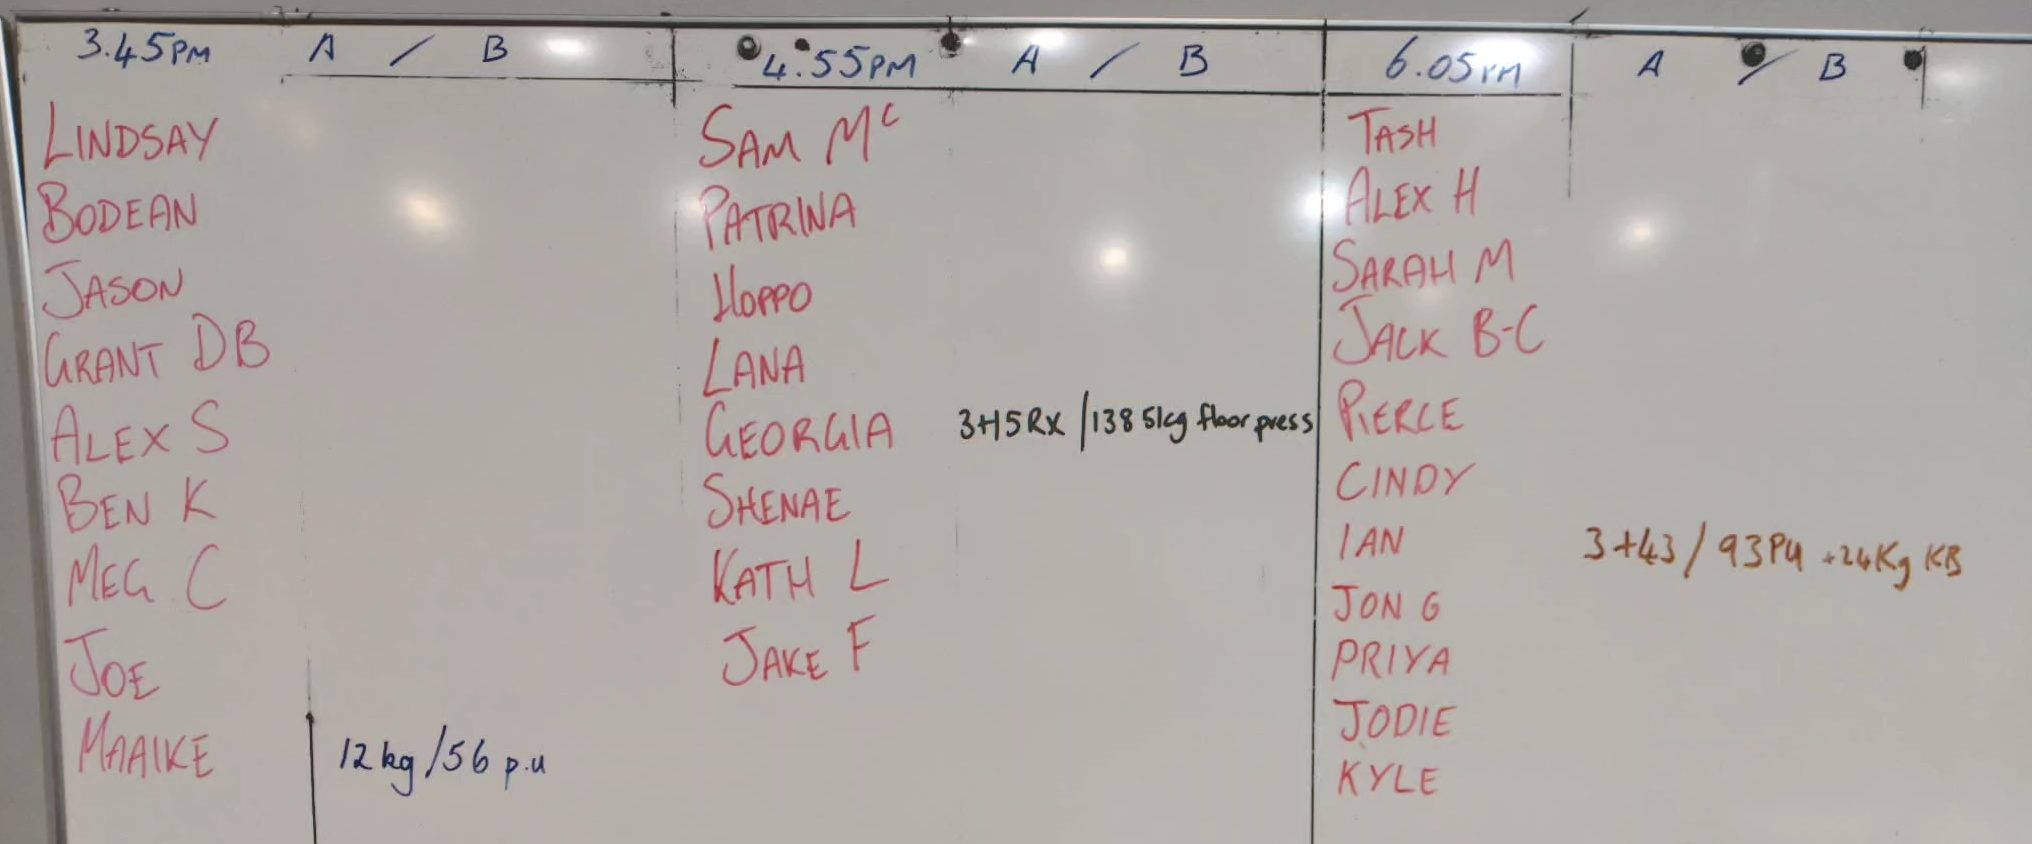 3.45PM A / B
LINDSAY
BODEAN
JASON
GRANT DB
ALEX S
BEN K
MEG C
JOE
MAAIKE 12kg/56 p.u
4.55PM A / B
SAM Mc
PATRINA
HOPPO
LANA
GEORGIA 3+15 RX /138 51kg floor press
SHENAE
KATH L
JAKE F
6.05PM A / B
TASH
ALEX H
SARAH M
JACK B-C
PIERCE
CINDY
IAN 3+43/93PU +24Kg KB
JON G
PRIYA
JODIE
KYLE